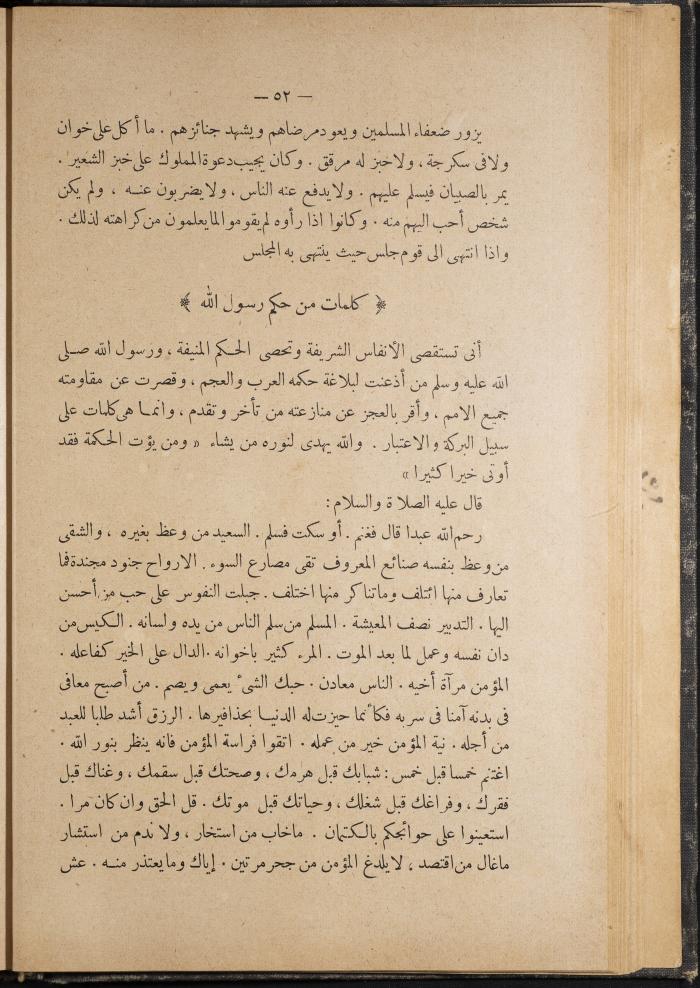 — ٥٢ —
يزور ضعفاء المسلمين ويعود مرضاهم ويشهد جنائزهم . ما أكل على خوان
ولا فى سكرجة ، ولا خبز له مرقق . وكان يجيب دعوة المملوك على خبز الشعير .
يمر بالصبيان فيسلم عليهم . ولا يدفع عنه الناس ، ولا يضربون عنه ، ولم يكن
شخص أحب اليهم منه . وكانوا اذا رأوه لم يقوموا لما يعلمون من كراهته لذلك .
واذا انتهى الى قوم جلس حيث ينتهى به المجلس
﴿ كلمات من حكم رسول الله ﴾
أنى تستقصى الأنفاس الشريفة وتحصى الحكم المنيفة ، ورسول الله صلى
الله عليه وسلم من أذعنت لبلاغة حكمه العرب والعجم ، وقصرت عن مقاومته
جميع الامم ، وأقر بالعجز عن منازعته من تأخر وتقدم ، وانما هى كلمات على
سبيل البركة والاعتبار . والله يهدى لنوره من يشاء « ومن يؤت الحكمة فقد
أوتى خيرا كثيرا »
قال عليه الصلاة والسلام :
رحم الله عبدا قال فغنم . أو سكت فسلم . السعيد من وعظ بغيره ، والشقى
من وعظ بنفسه صنائع المعروف تقى مصارع السوء . الارواح جنود مجندة فما
تعارف منها ائتلف وما تناكر منها اختلف . جبلت النفوس على حب من أحسن
اليها . التدبير نصف المعيشة . المسلم من سلم الناس من يده ولسانه . الكيس من
دان نفسه وعمل لما بعد الموت . المرء كثير باخوانه . الدال على الخير كفاعله .
المؤمن مرآة أخيه . الناس معادن . حبك الشئ يعمى ويصم . من أصبح معافى
فى بدنه آمنا فى سربه فكأنما حيزت له الدنيا بحذافيرها . الرزق أشد طلبا للعبد
من أجله . نية المؤمن خير من عمله . اتقوا فراسة المؤمن فانه ينظر بنور الله .
اغتنم خمسا قبل خمس : شبابك قبل هرمك ، وصحتك قبل سقمك ، وغناك قبل
فقرك ، وفراغك قبل شغلك ، وحياتك قبل موتك . قل الحق وان كان مرا .
استعينوا على حوائجكم بالكتمان . ما خاب من استخار ، ولا ندم من استشار
ما غال من اقتصد ، لا يلدغ المؤمن من جحر مرتين . إياك وما يعتذر منه . عش